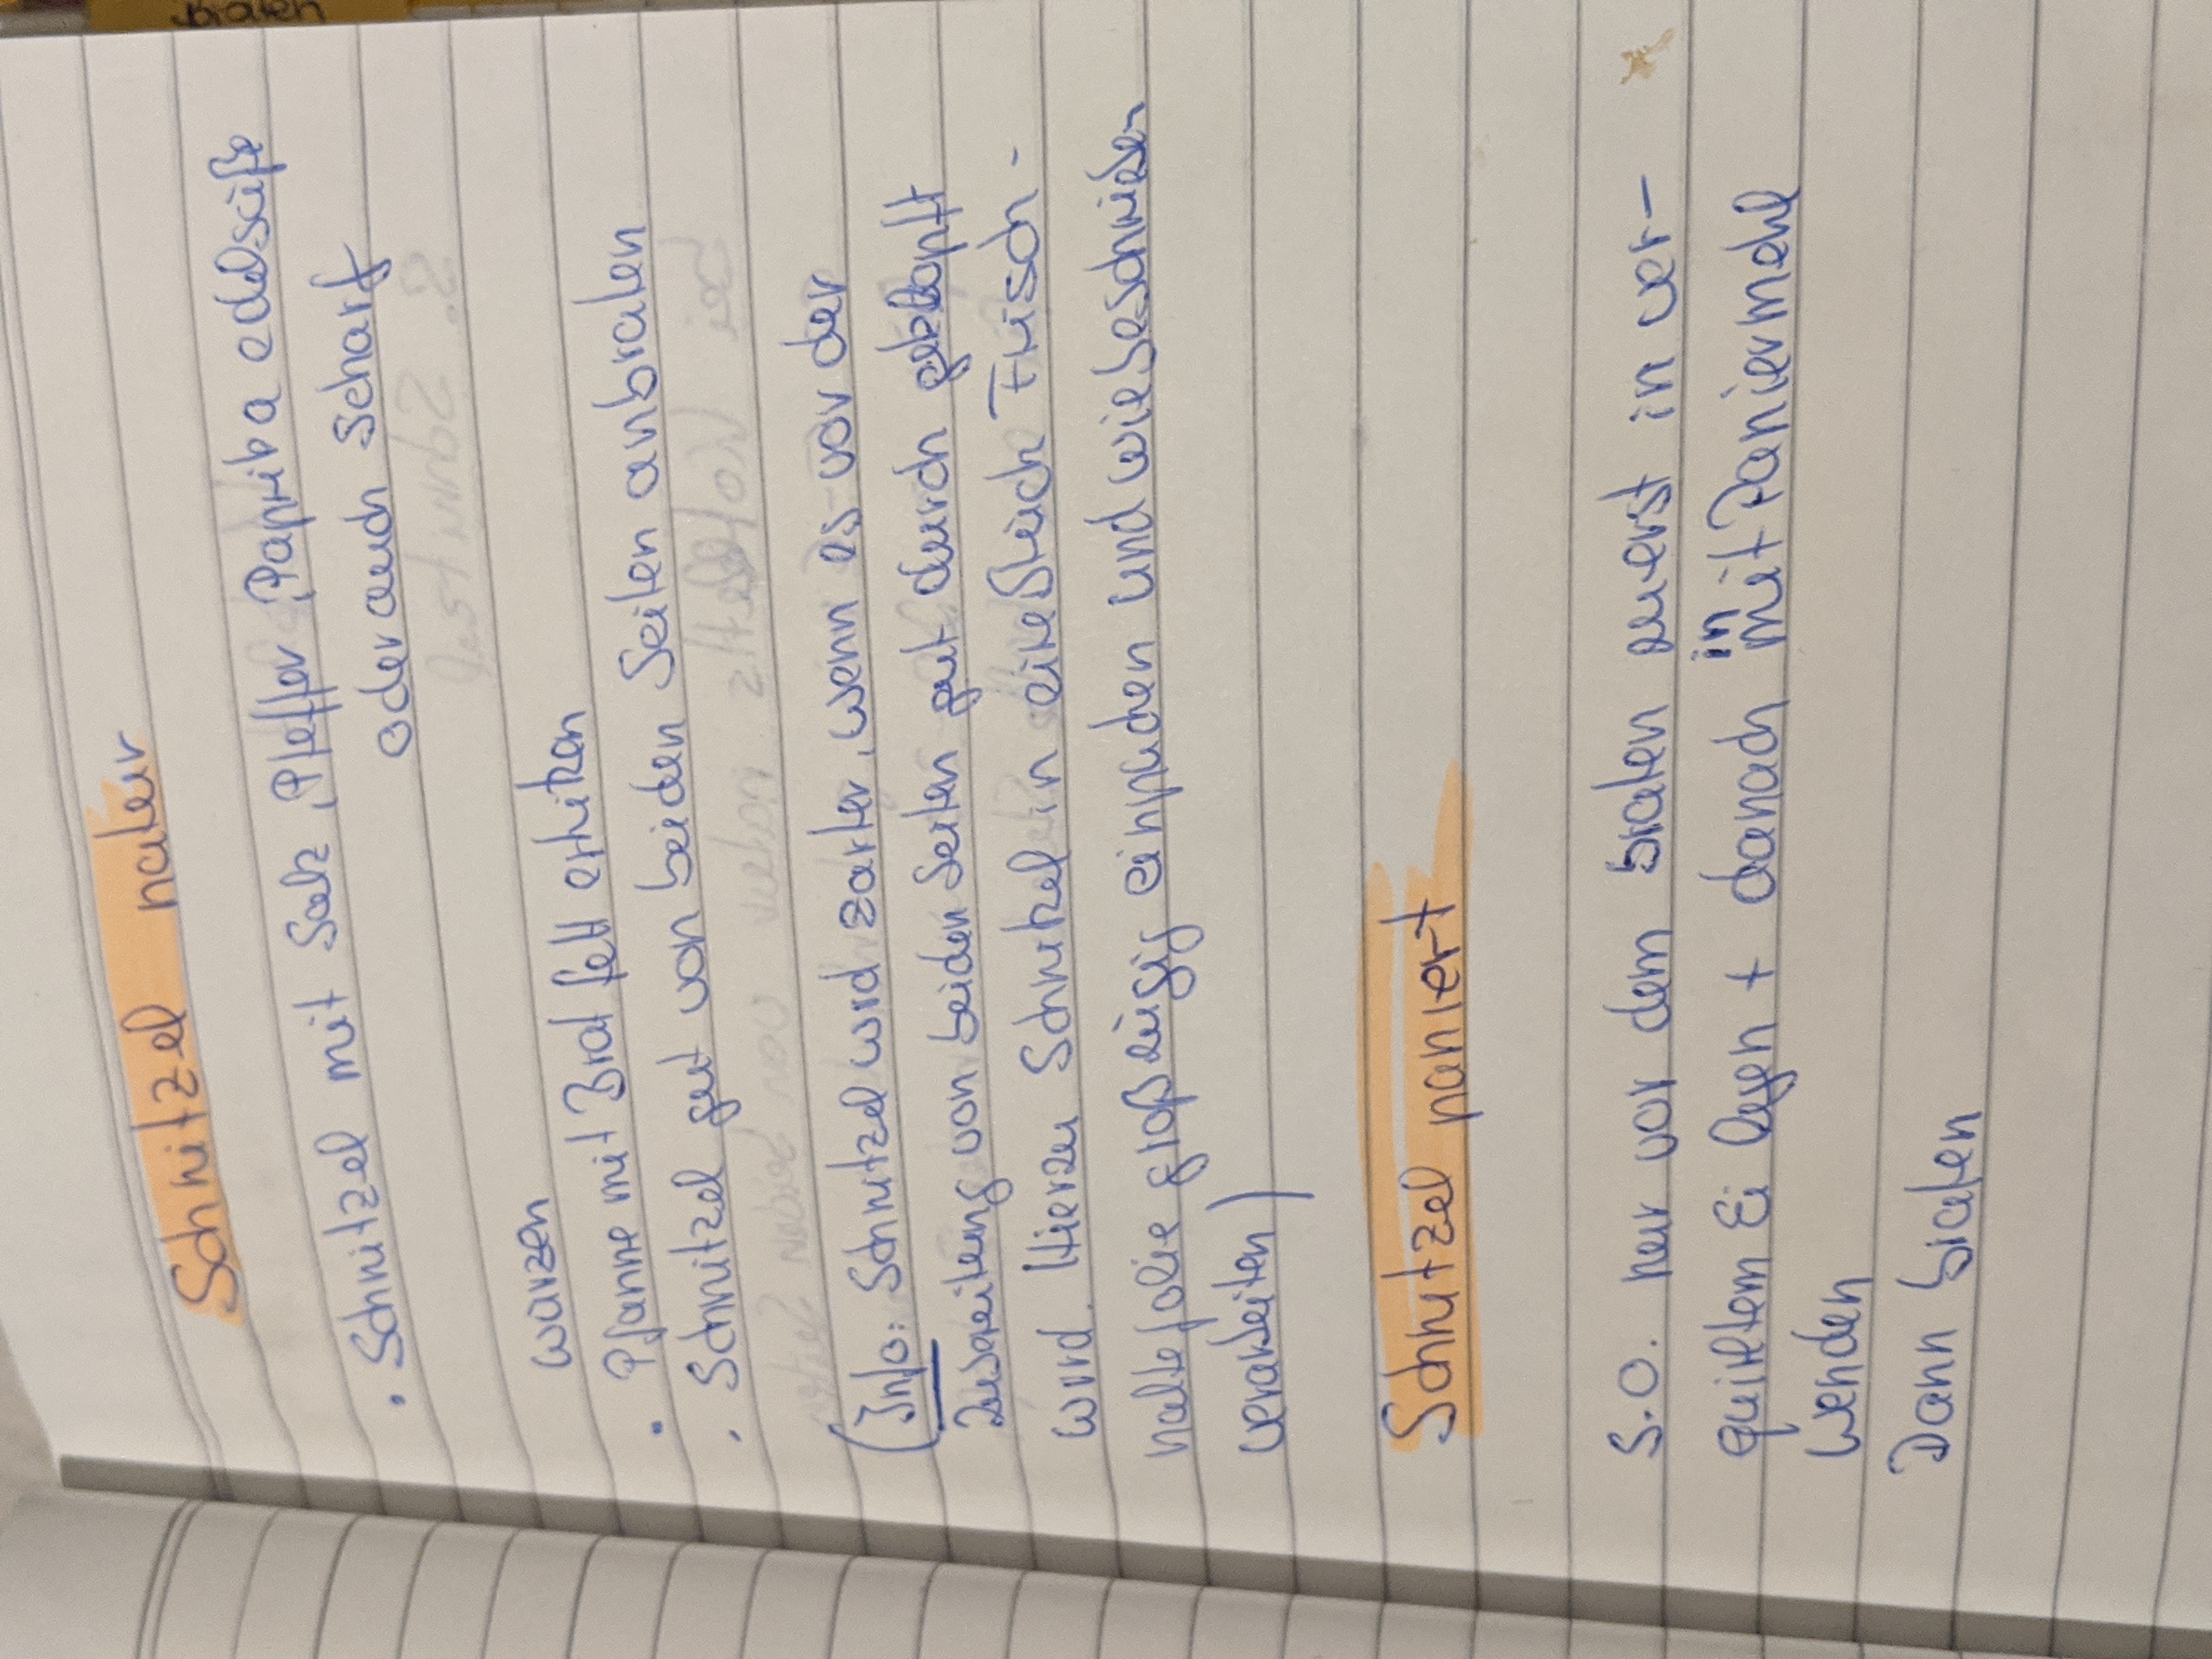 braten
Schnitzel natur
• Schnitzel mit Salz, Pfeffer, Paprika edelsüß
oder auch scharf
würzen
• Pfanne mit Bratfett erhitzen
• Schnitzel gut von beiden Seiten anbraten
(Info: Schnitzel wird zarter, wenn es vor der
Zubereitung von beiden Seiten gut durch geklopft
wird. Hierzu Schnitzel in ein Stück Frisch-
haltefolie großzügig einpacken und wie beschrieben
verarbeiten)
Schnitzel paniert
S.O. nur vor dem braten zuerst in ver-
quirltem Ei legen + danach in
mit Paniermehl
wenden
Dann braten